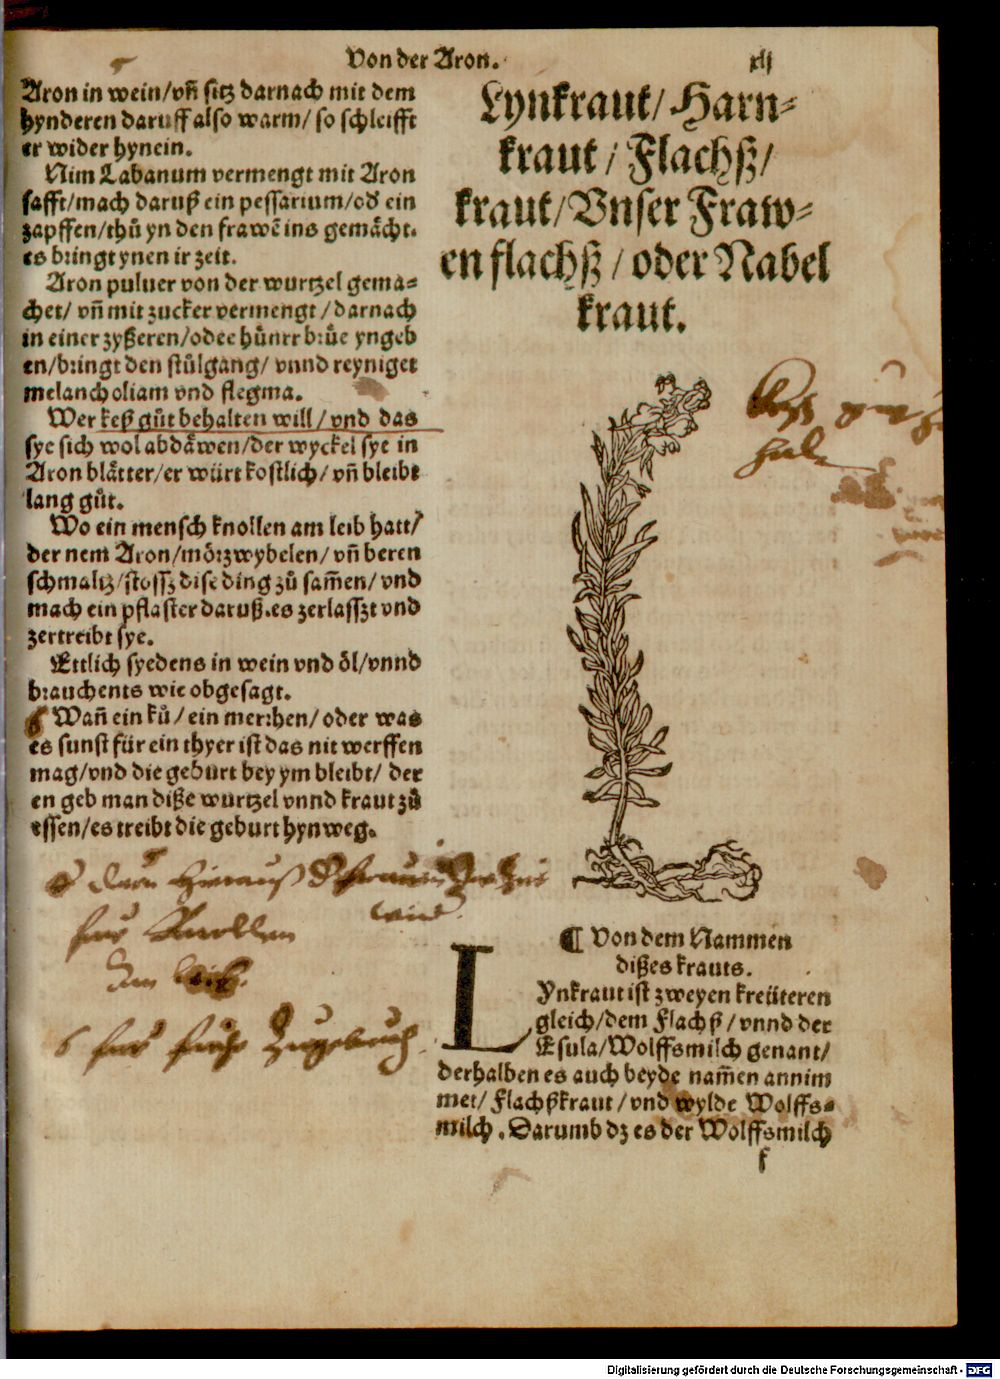 Von der Aron.
xlj
Aron in wein/vn̄ sitz darnach mit dem
hynderen daruff also warm/ so schleifft
er wider hynein.
Nim Labanum vermengt mit Aron
safft/mach daruß ein pessarium/od̕ ein
zapffen/thů yn den frawē ins gemächt.
es bringt ynen ir zeit.
Aron puluer von der wurtzel gema⸗
chet/ vn̄ mit zucker vermengt/darnach
in einer zyßeren/odee hůnrr brůe yngeb
en/bringt den stůlgang/ vnnd reyniget
melancholiam vnd flegma.
Wer keß gůt behalten will/ vnd das
sye sich wol abdäwen/der wyckel sye in
Aron blätter/er würt kostlich/vn̄ bleibt
lang gůt.
Wo ein mensch knollen am leib hatt/
der nem Aron/mörzwybelen/vn̄ beren
schmaltz/stossz dise ding zů sam̄en/vnd
mach ein pflaster daruß.es zerlasszt vnd
zertreibt sye.
Ettlich syedens in wein vnd öl/vnnd
brauchents wie obgesagt.
Wan̄ ein ků/ein merrhen/oder was
es sunst für ein thyer ist das nit werffen
mag/vnd die geburt bey ym bleibt/ der
en geb man diße wurtzel vnnd kraut zů
essen/es treibt die geburt hynweg.
hierauß
wird
für Knollen
Am leib.
für
Lynkraut/ Harn⸗
kraut/Flachß/
kraut/Vnser Fraw⸗
en flachß/oder Nabel
kraut.
Keß gut
¶ Von dem Nammen
dißes krauts.
LYnkraut ist zweyen kreüteren
gleich/dem Flachß/vnnd der
Esula/Wolffsmilch genant/
derhalben es auch beyde nam̄en annim
met/ Flachßkraut/vnd wylde Wolffs⸗
milch. Darumb dz es der Wolffsmilch
f
Digitalisierung gefördert durch die Deutsche Forschungsgemeinschaft - DFG